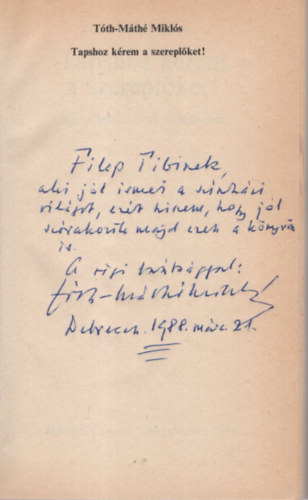 Tóth-Máthé Miklós
Tapshoz kérem a szereplőket!
Filep Tibinek,
aki jól ismeri a színházi
világot, ezért hiszem, hogy jól
szórakozik majd ezen a könyvön
is.
A régi barátsággal:
Tóth-Máthé Miklós
Debrecen, 1988. márc. 21.